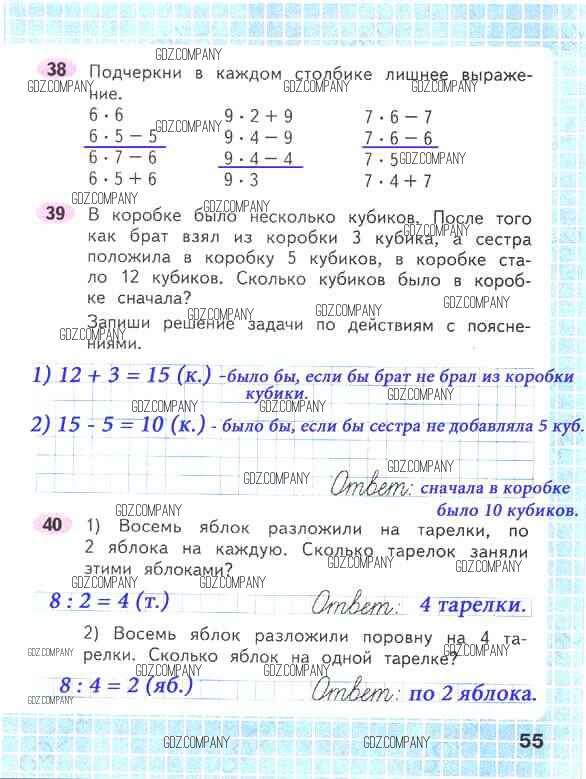 GDZ.COMPANY
38 Подчеркни в каждом столбике лишнее выраже-
GDZ.COMPANY GDZ.COMPANY GDZ.COMPANY GDZ.COMPANY
ние.
6 · 6 9 · 2 + 9 7 · 6 − 7
GDZ.COMPANY
6 · 5 − 5 9 · 4 − 9 7 · 6 − 6
6 · 7 − 6 9 · 4 − 4 7 · 5 GDZ.COMPANY
6 · 5 + 6 9 · 3 7 · 4 + 7
GDZ.COMPANY GDZ.COMPANY
39 В коробке было несколько кубиков. После того
GDZ.COMPANY
как брат взял из коробки 3 кубика, а сестра
положила в коробку 5 кубиков, в коробке ста-
GDZ.COMPANY
ло 12 кубиков. Сколько кубиков было в короб-
ке сначала?
GDZ.COMPANY GDZ.COMPANY GDZ.COMPANY
Запиши решение задачи по действиям с поясне-
GDZ.COMPANY
ниями.
1) 12 + 3 = 15 (к.) -было бы, если бы брат не брал из коробки
кубики.
GDZ.COMPANY GDZ.COMPANY GDZ.COMPANY
2) 15 - 5 = 10 (к.) - было бы, если бы сестра не добавляла 5 куб.
GDZ.COMPANY GDZ.COMPANY
Ответ: сначала в коробке
было 10 кубиков.
GDZ.COMPANY
40 1) Восемь яблок разложили на тарелки, по
2 яблока на каждую. Сколько тарелок заняли
GDZ.COMPANY GDZ.COMPANY
этими яблоками?
GDZ.COMPANY GDZ.COMPANY GDZ.COMPANY
8 : 2 = 4 (т.) Ответ: 4 тарелки.
2) Восемь яблок разложили поровну на 4 та-
GDZ.COMPANY GDZ.COMPANY
релки. Сколько яблок на одной тарелке?
GDZ.COMPANY GDZ.COMPANY
8 : 4 = 2 (яб.) Ответ: по 2 яблока.
GDZ.COMPANY GDZ.COMPANY
55
GDZ.COMPANY GDZ.COMPANY